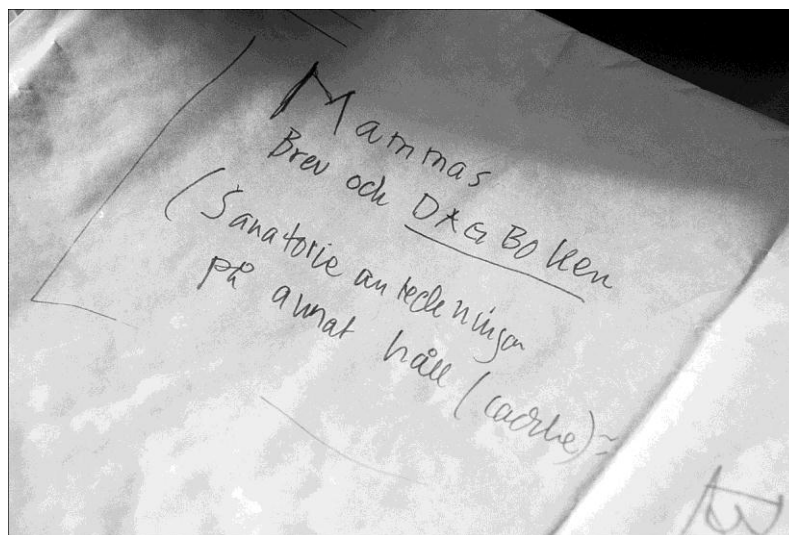 Mammas
Brev och DAGBOKen
(Sanatorie anteckningar
på annat håll (cache)